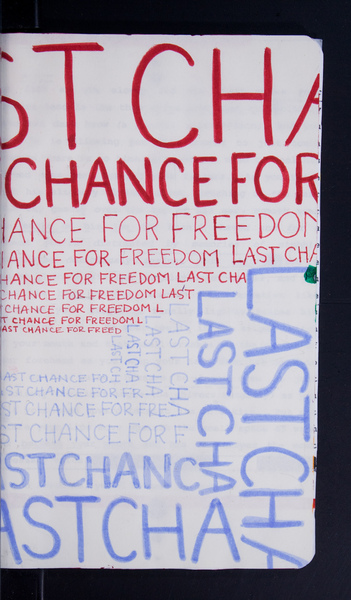 ST CHA
CHANCE FOR
HANCE FOR FREEDOM
HANCE FOR FREEDOM LAST CHA
HANCE FOR FREEDOM LAST CHA
CHANCE FOR FREEDOM LAST
T CHANCE FOR FREEDOM L
T CHANCE FOR FREEDOM L
AST CHANCE FOR FREED
LAST CH
LASTCHA
LAST CHA
LAST CHA
LAST CHA
LAST CHA
AST CHANCE FO
AST CHANCE FOR FR
ST CHANCE FOR FRE
ST CHANCE FOR F
ASTCHANC
ASTCHA